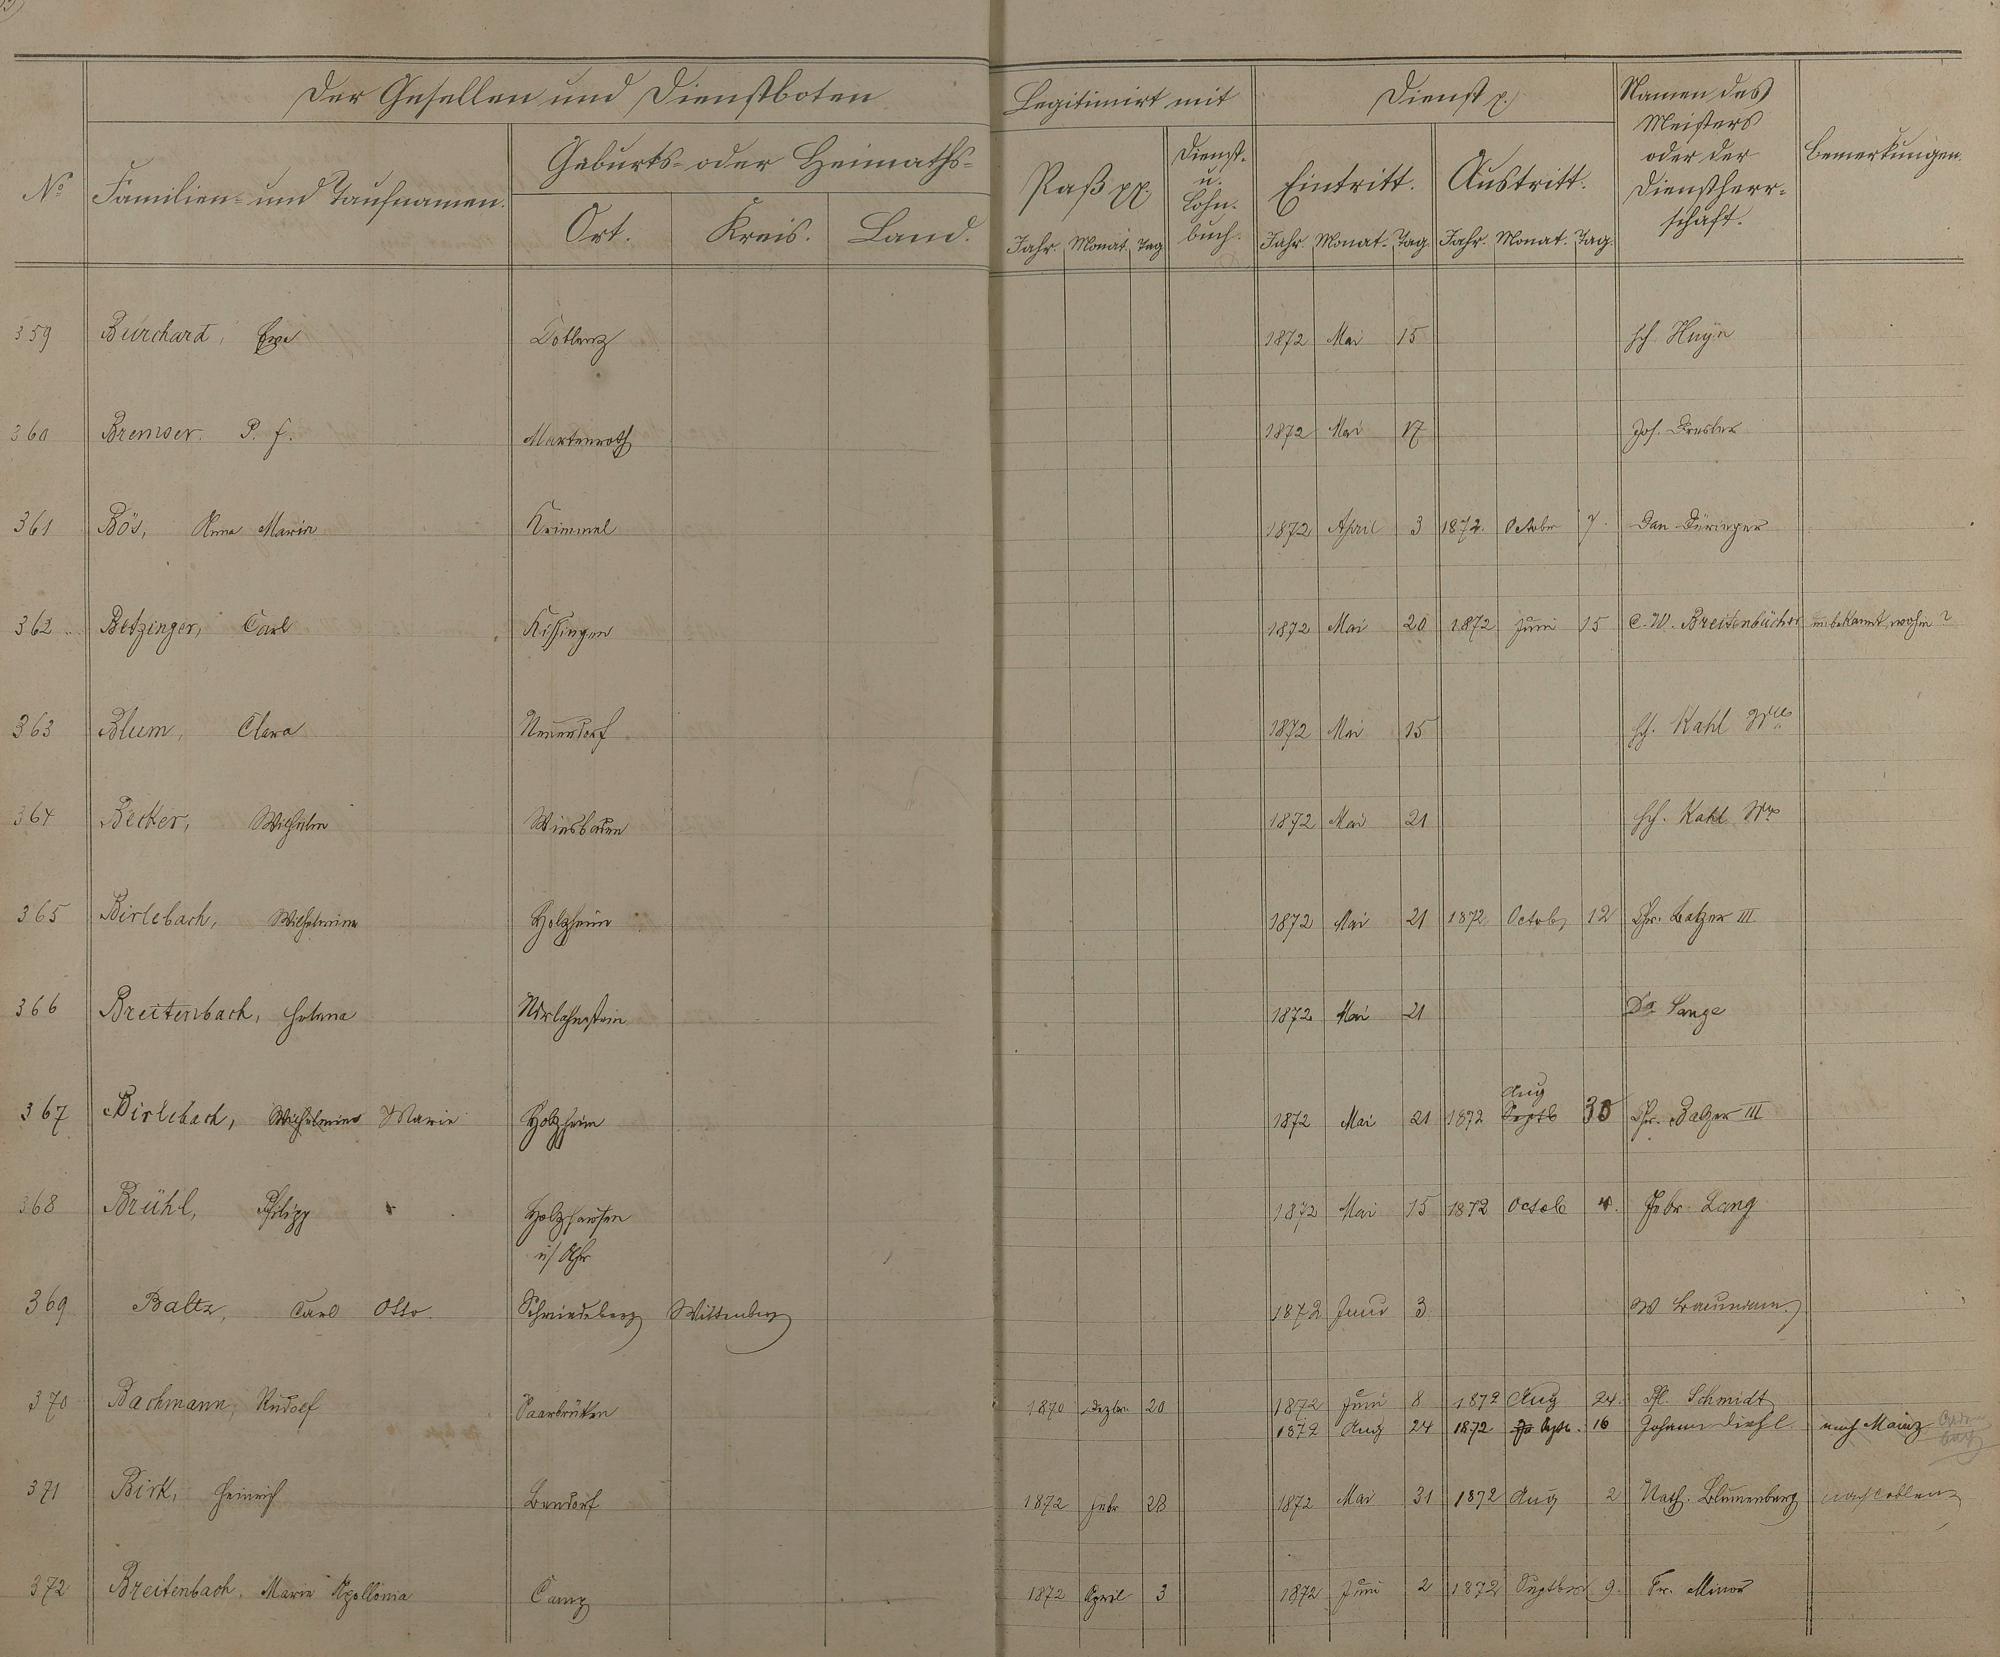 Der Gesellen und Dienstboten
Legitimirt mit
Dienst p.
Namen des Meisters oder der Dienstherrschaft.
Bemerkungen.
No
Familien- und Taufnamen.
Geburts- oder Heimaths-
Ort. Kreis. Land.
Paß pp.
Dienst- u. Lohn- buch.
Eintritt. Austritt.
Jahr. Monat. Tag Jahr. Monat. Tag. Jahr. Monat. Tag.
359 Burchard, Eva Coblenz 1872 Mai 15 Hch. Huyn
360 Bremser. P. J. Martenroth 1872 Mai 17 Jos.
361 Bös, Anna Maria Krimmel 1872 April 3 1872. October 7. Dan Düringer
362 Betzinger, Carl Kissingen 1872 Mai 20 1872 Juni 15 C. W. Breitenbücher unbekannt wohin?
363 Blum, Clara Neuendorf 1872 Mai 15 Hch. Kahl Wwe
364 Becker, Wilhelm Wiesbaden 1872 Mai 21 Hch. Kahl Wwe
365 Birlebach, Wilhelmine Holzheim 1872 Mai 21 1872 Octob. 12 Chr. Balzer III
366 Breitenbach, Helena Ndrlahnstein 1872 Mai 21 Dr Lange
Aug
367 Birlebach, Wilhelmine Marie Holzheim 1872 Mai 21 1872 Septb 30 Chr. Balzer III
368 Brühl, Philipp Holzhausen 1872 Mai 15 1872 Octob 4. Gebr Lang
ü/ Ahr
369 Baltz, Carl Otto. Schmiedeberg Wittenberg 1872 Juni 3 W Baumann
370 Bachmann, Rudolf Saarbrücken 1870 Dezbr. 20 1872 Juni 8 1872 Aug 24. Schmidt
1872 Aug 24 1872 Septb. 16 Johann Diehl nach Mainz
371 Birk, Heinrich Bendorf 1872 Febr 28 1872 Mai 31 1872 Aug 2 Nath. Blumenberg nach Coblenz
372 Breitenbach, Marie Apollonia Camp 1872 April 3 1872 Juni 2 1872 Septber 9. Fr. Minor